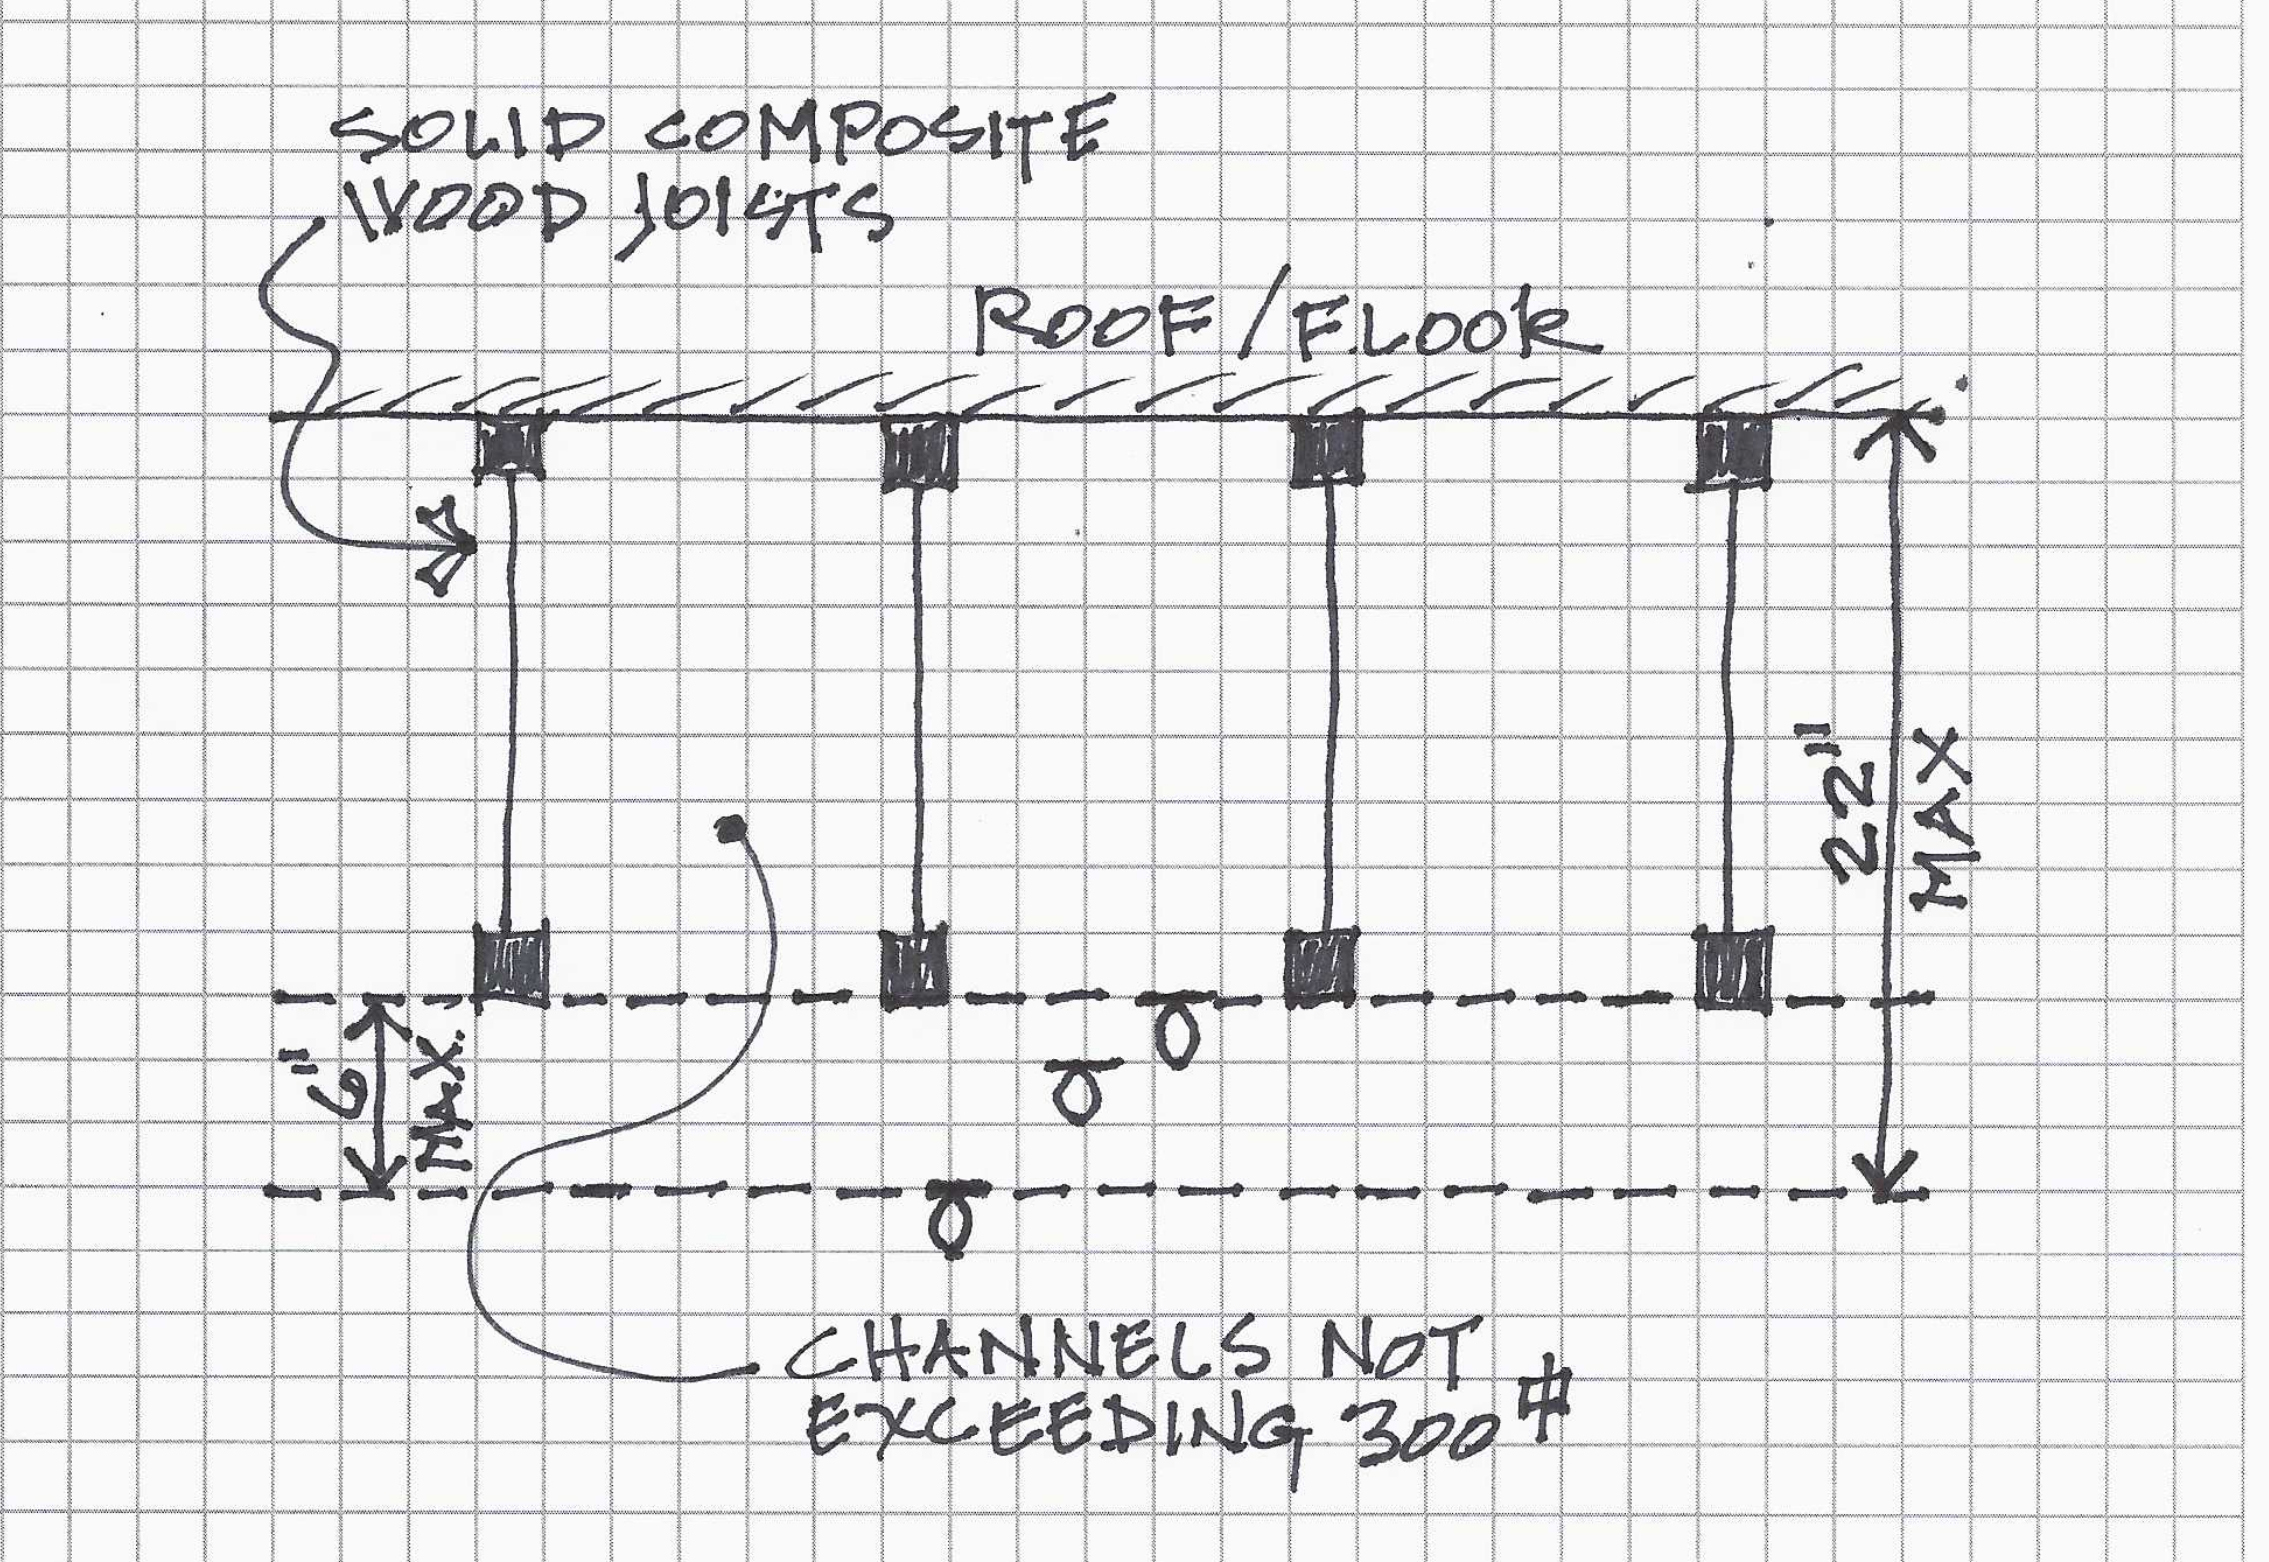 SOLID COMPOSITE
WOOD JOISTS
ROOF/FLOOR
22"
MAX
6"
MAX.
CHANNELS NOT
EXCEEDING 300 #